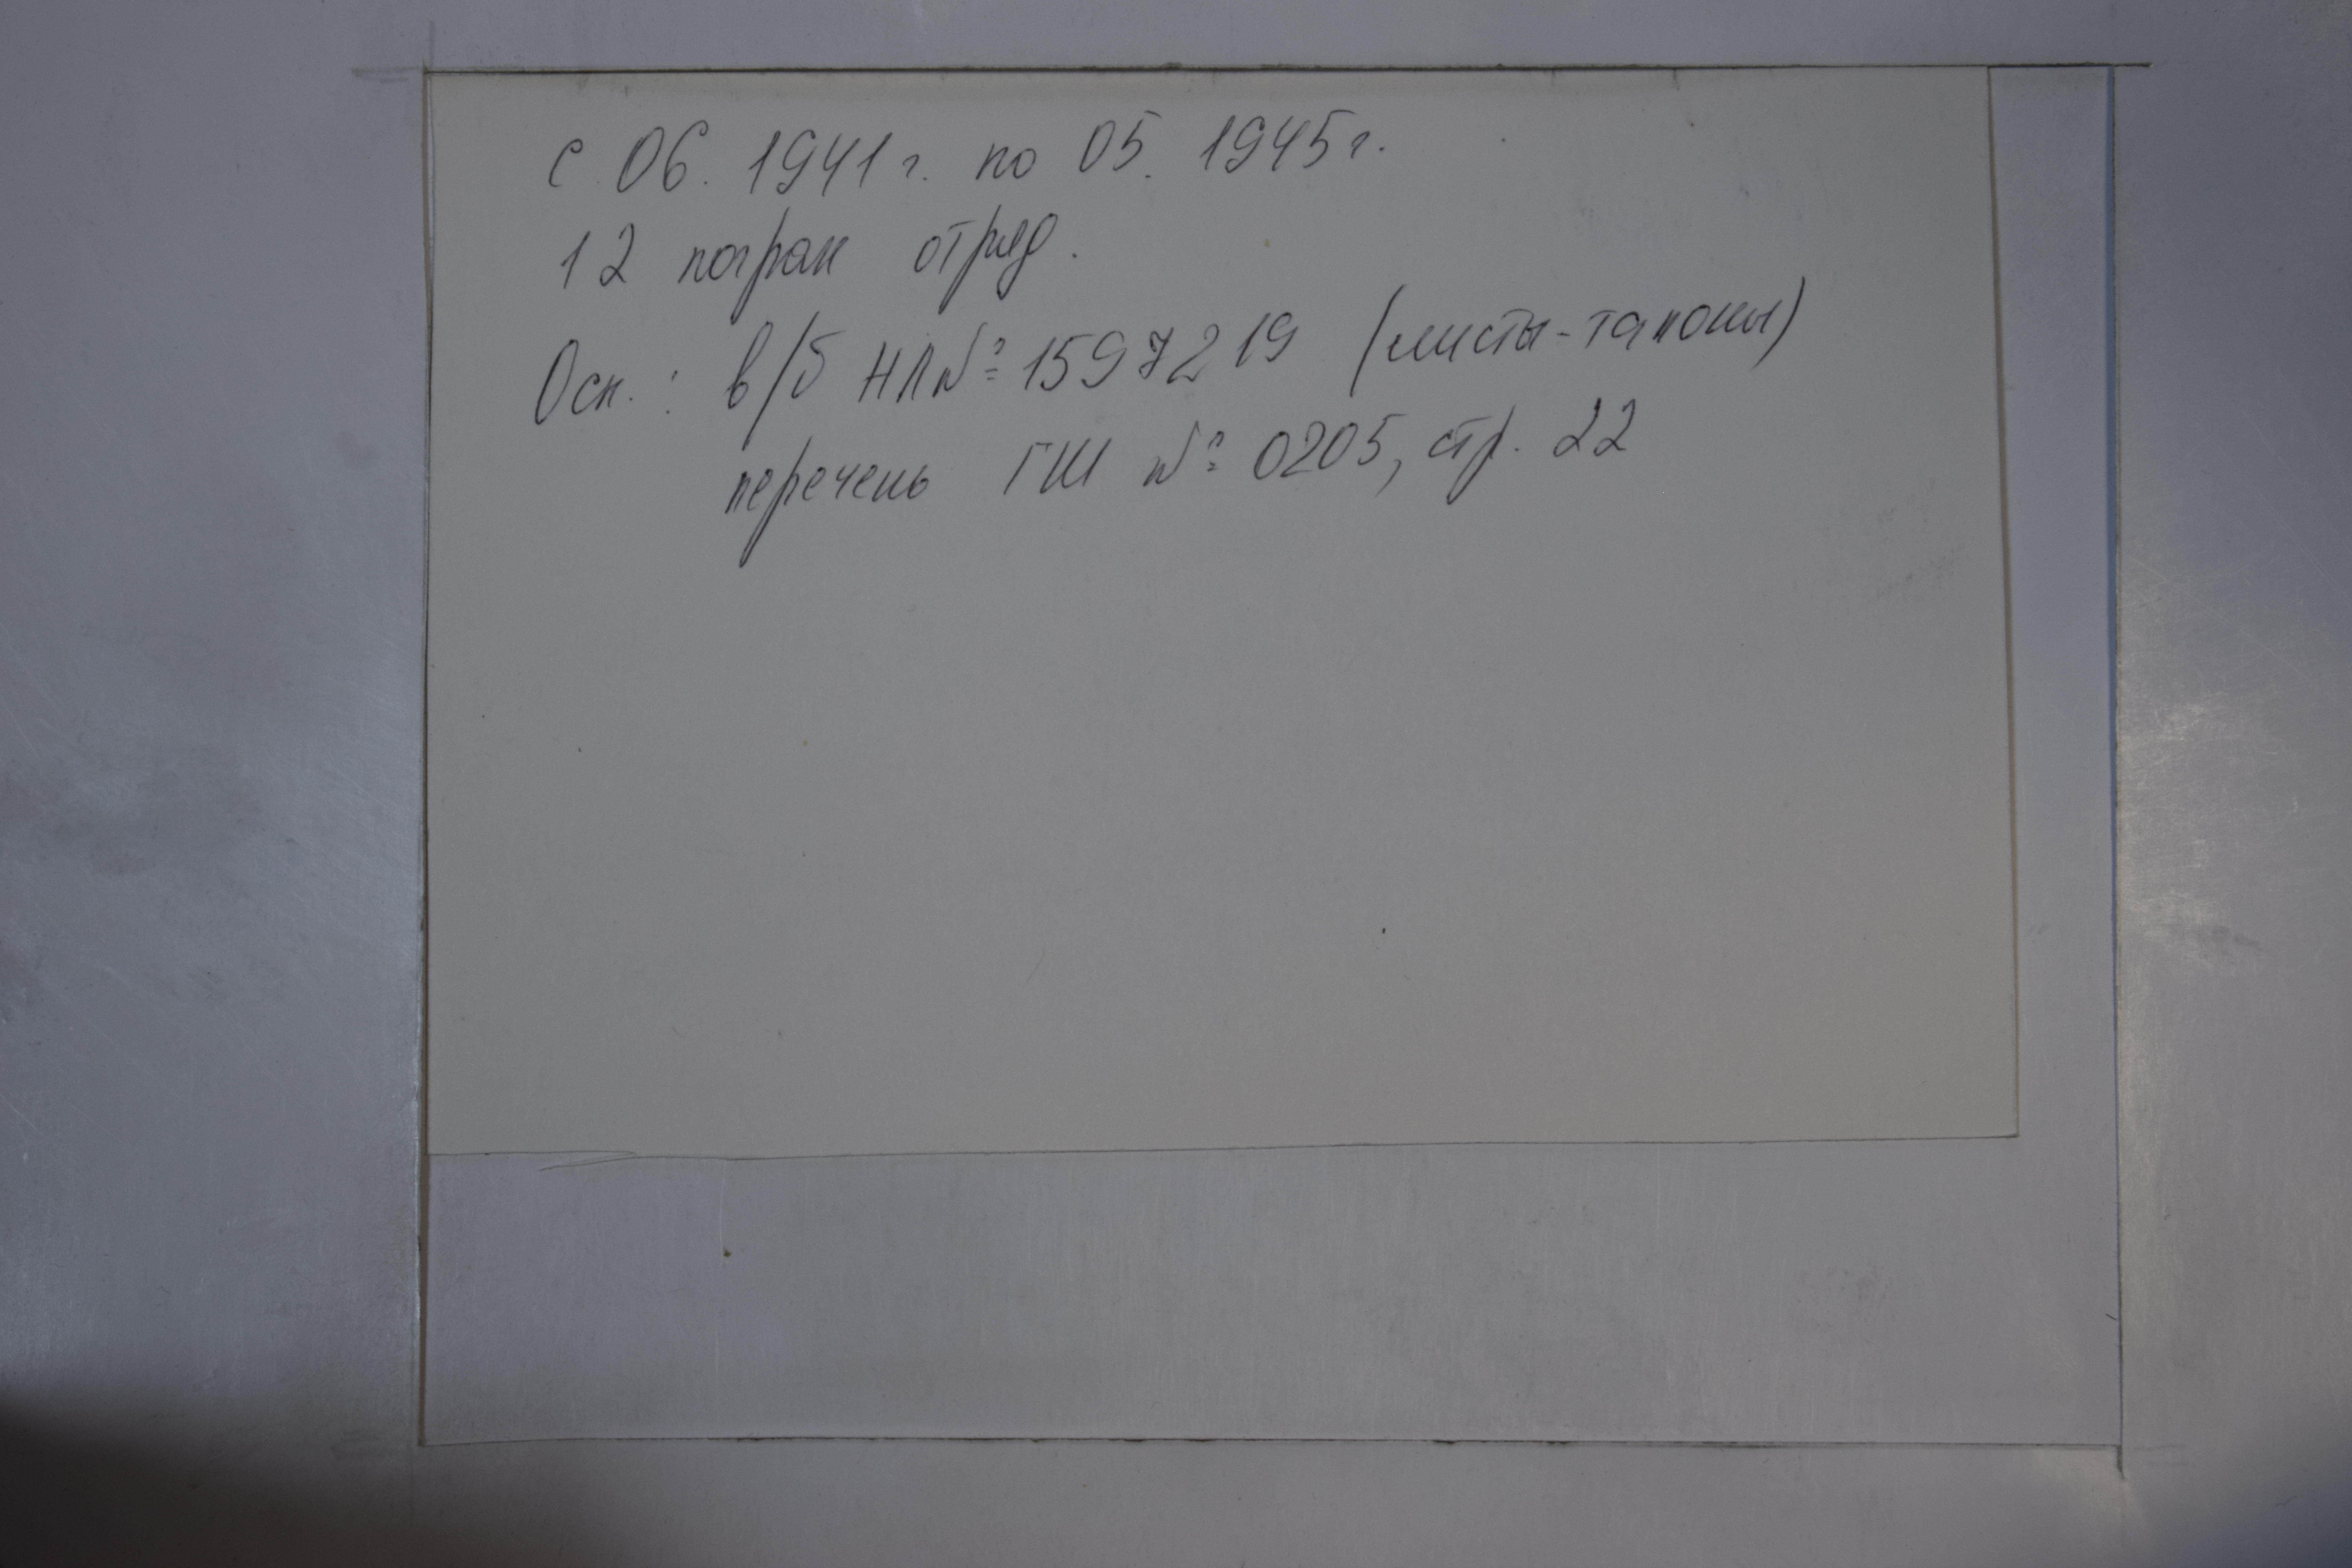 с 06. 1941 г. по 05. 1945 г.
12 погран отряд.
Осн.: в/б НЛ№ 1597219 (листы-талоны)
перечень ГШ № 0205, стр. 22